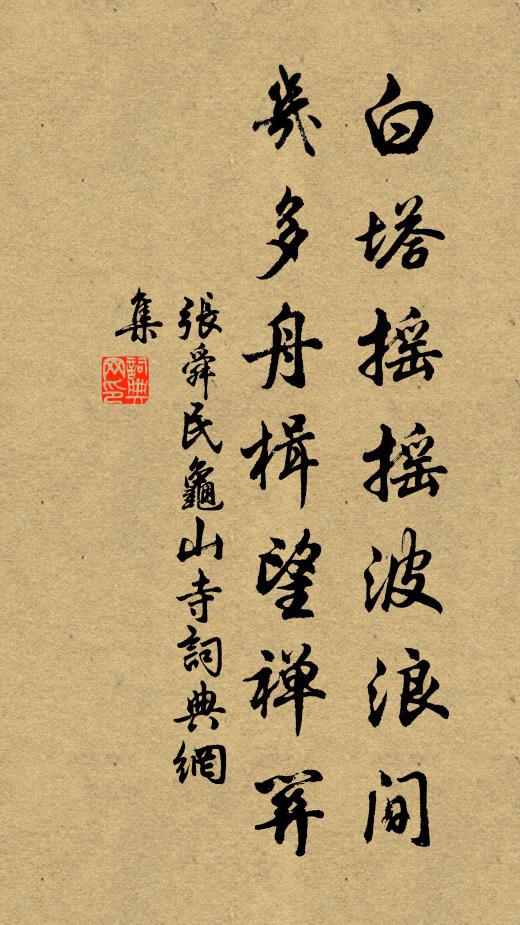 白塔摇摇波浪间
几多舟楫望禅关
張舜民龜山寺詞典網
集
詞典網印